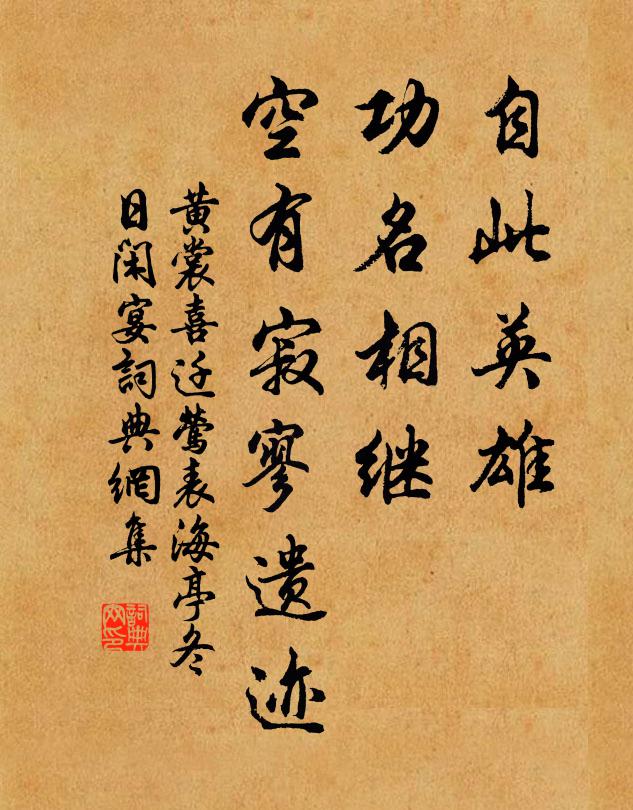 自此英雄
功名相继
空有寂寥遗迹
黄裳喜迁莺表海亭冬
日閑宴詞典網集
詞典
网印